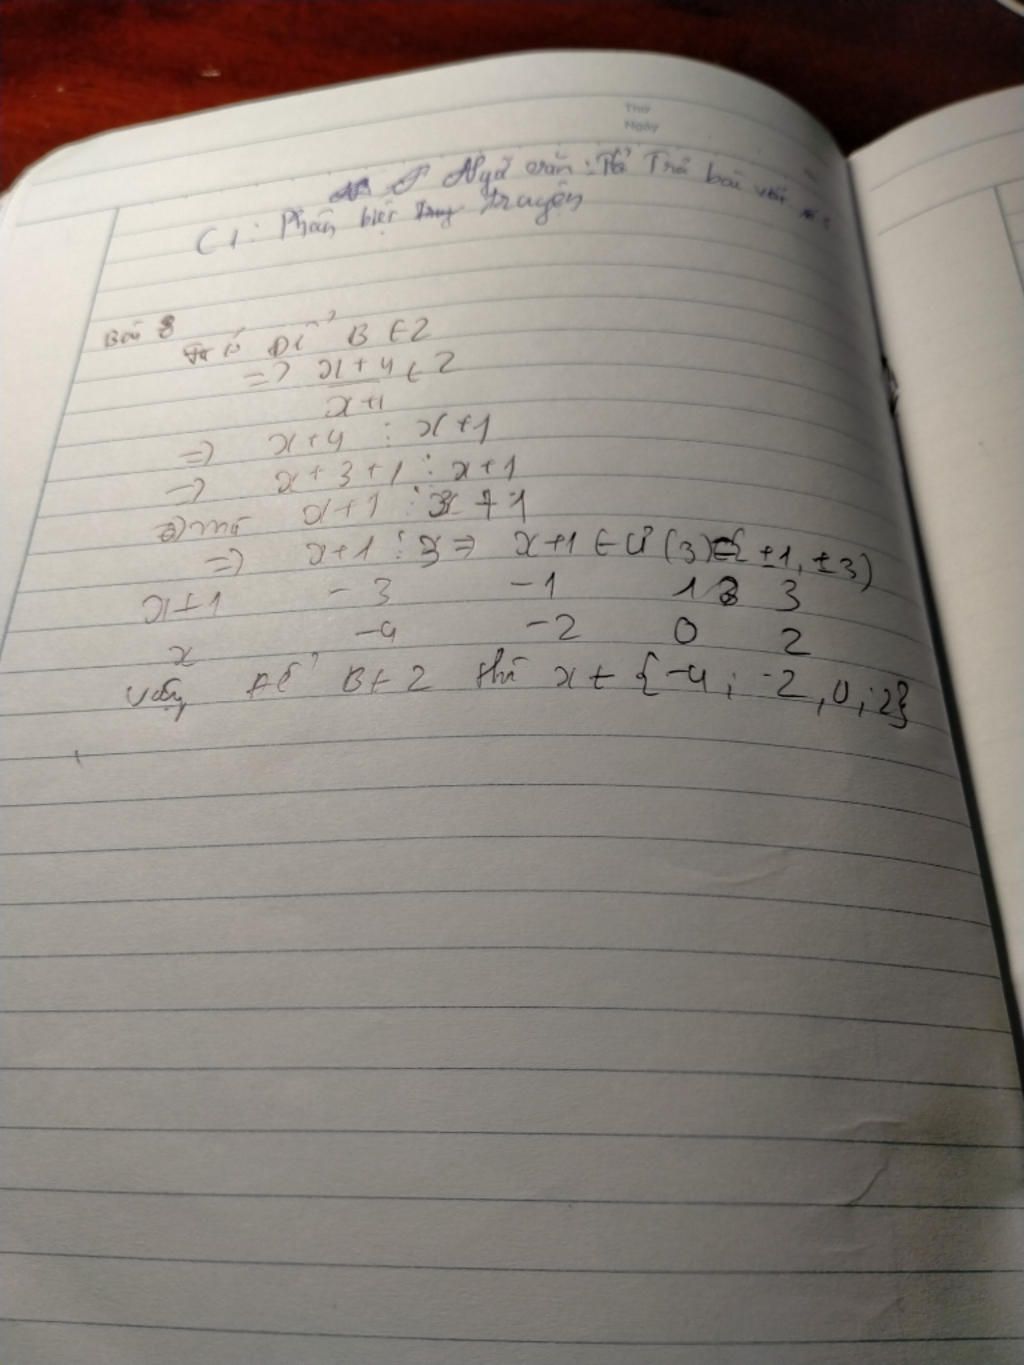 Thứ
Ngày
Ngữ văn : Trả bài
C1 : Phân biệt truyện
Bài 8
Để B ∈ Z
=> x+4 ∈ Z
x+1
=> x+4 ⋮ x+1
=> x+3+1 ⋮ x+1
mà x+1 ⋮ x+1
=> x+1 ⋮ 3 => x+1 ∈ Ư (3) ∈ { ±1, ±3)
x+1 -3 -1 1 3
x -4 -2 0 2
Vậy để B ∈ Z thì x ∈ {-4 ; -2 , 0 ; 2}